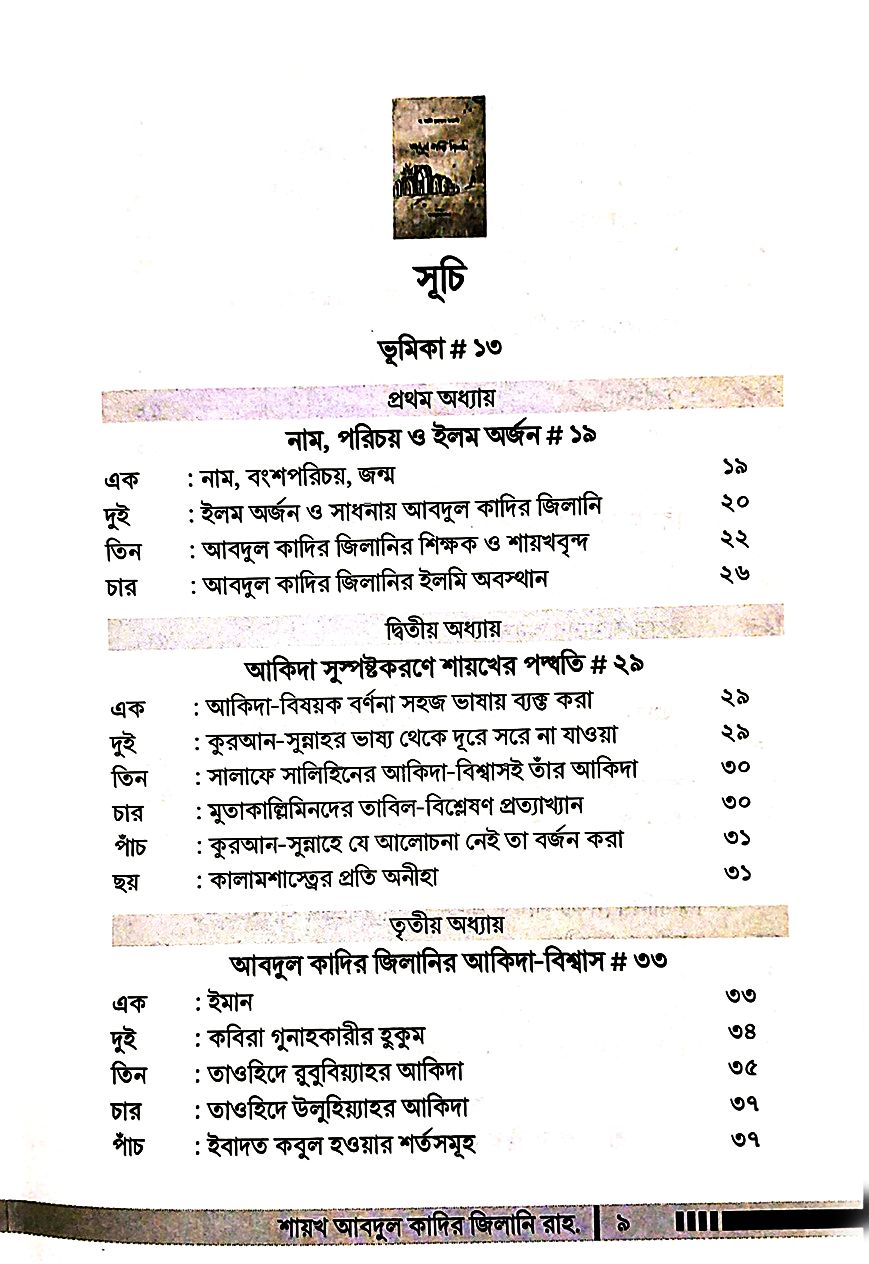 সূচি
ভূমিকা # ১৩
প্রথম অধ্যায়
নাম, পরিচয় ও ইলম অর্জন # ১৯
এক : নাম, বংশপরিচয়, জন্ম ১৯
দুই : ইলম অর্জন ও সাধনায় আবদুল কাদির জিলানি ২০
তিন : আবদুল কাদির জিলানির শিক্ষক ও শায়খবৃন্দ ২২
চার : আবদুল কাদির জিলানির ইলমি অবস্থান ২৬
দ্বিতীয় অধ্যায়
আকিদা সুস্পষ্টকরণে শায়খের পদ্ধতি # ২৯
এক : আকিদা-বিষয়ক বর্ণনা সহজ ভাষায় ব্যক্ত করা ২৯
দুই : কুরআন-সুন্নাহর ভাষ্য থেকে দূরে সরে না যাওয়া ২৯
তিন : সালাফে সালিহিনের আকিদা-বিশ্বাসই তাঁর আকিদা ৩০
চার : মুতাকাল্লিমিনদের তাবিল-বিশ্লেষণ প্রত্যাখ্যান ৩০
পাঁচ : কুরআন-সুন্নাহে যে আলোচনা নেই তা বর্জন করা ৩১
ছয় : কালামশাস্ত্রের প্রতি অনীহা ৩১
তৃতীয় অধ্যায়
আবদুল কাদির জিলানির আকিদা-বিশ্বাস # ৩৩
এক : ইমান ৩৩
দুই : কবিরা গুনাহকারীর হুকুম ৩৪
তিন : তাওহিদে রুবুবিয়্যাহর আকিদা ৩৫
চার : তাওহিদে উলুহিয়্যাহর আকিদা ৩৭
পাঁচ : ইবাদত কবুল হওয়ার শর্তসমূহ ৩৭
শায়খ আবদুল কাদির জিলানি রাহ. | ৯